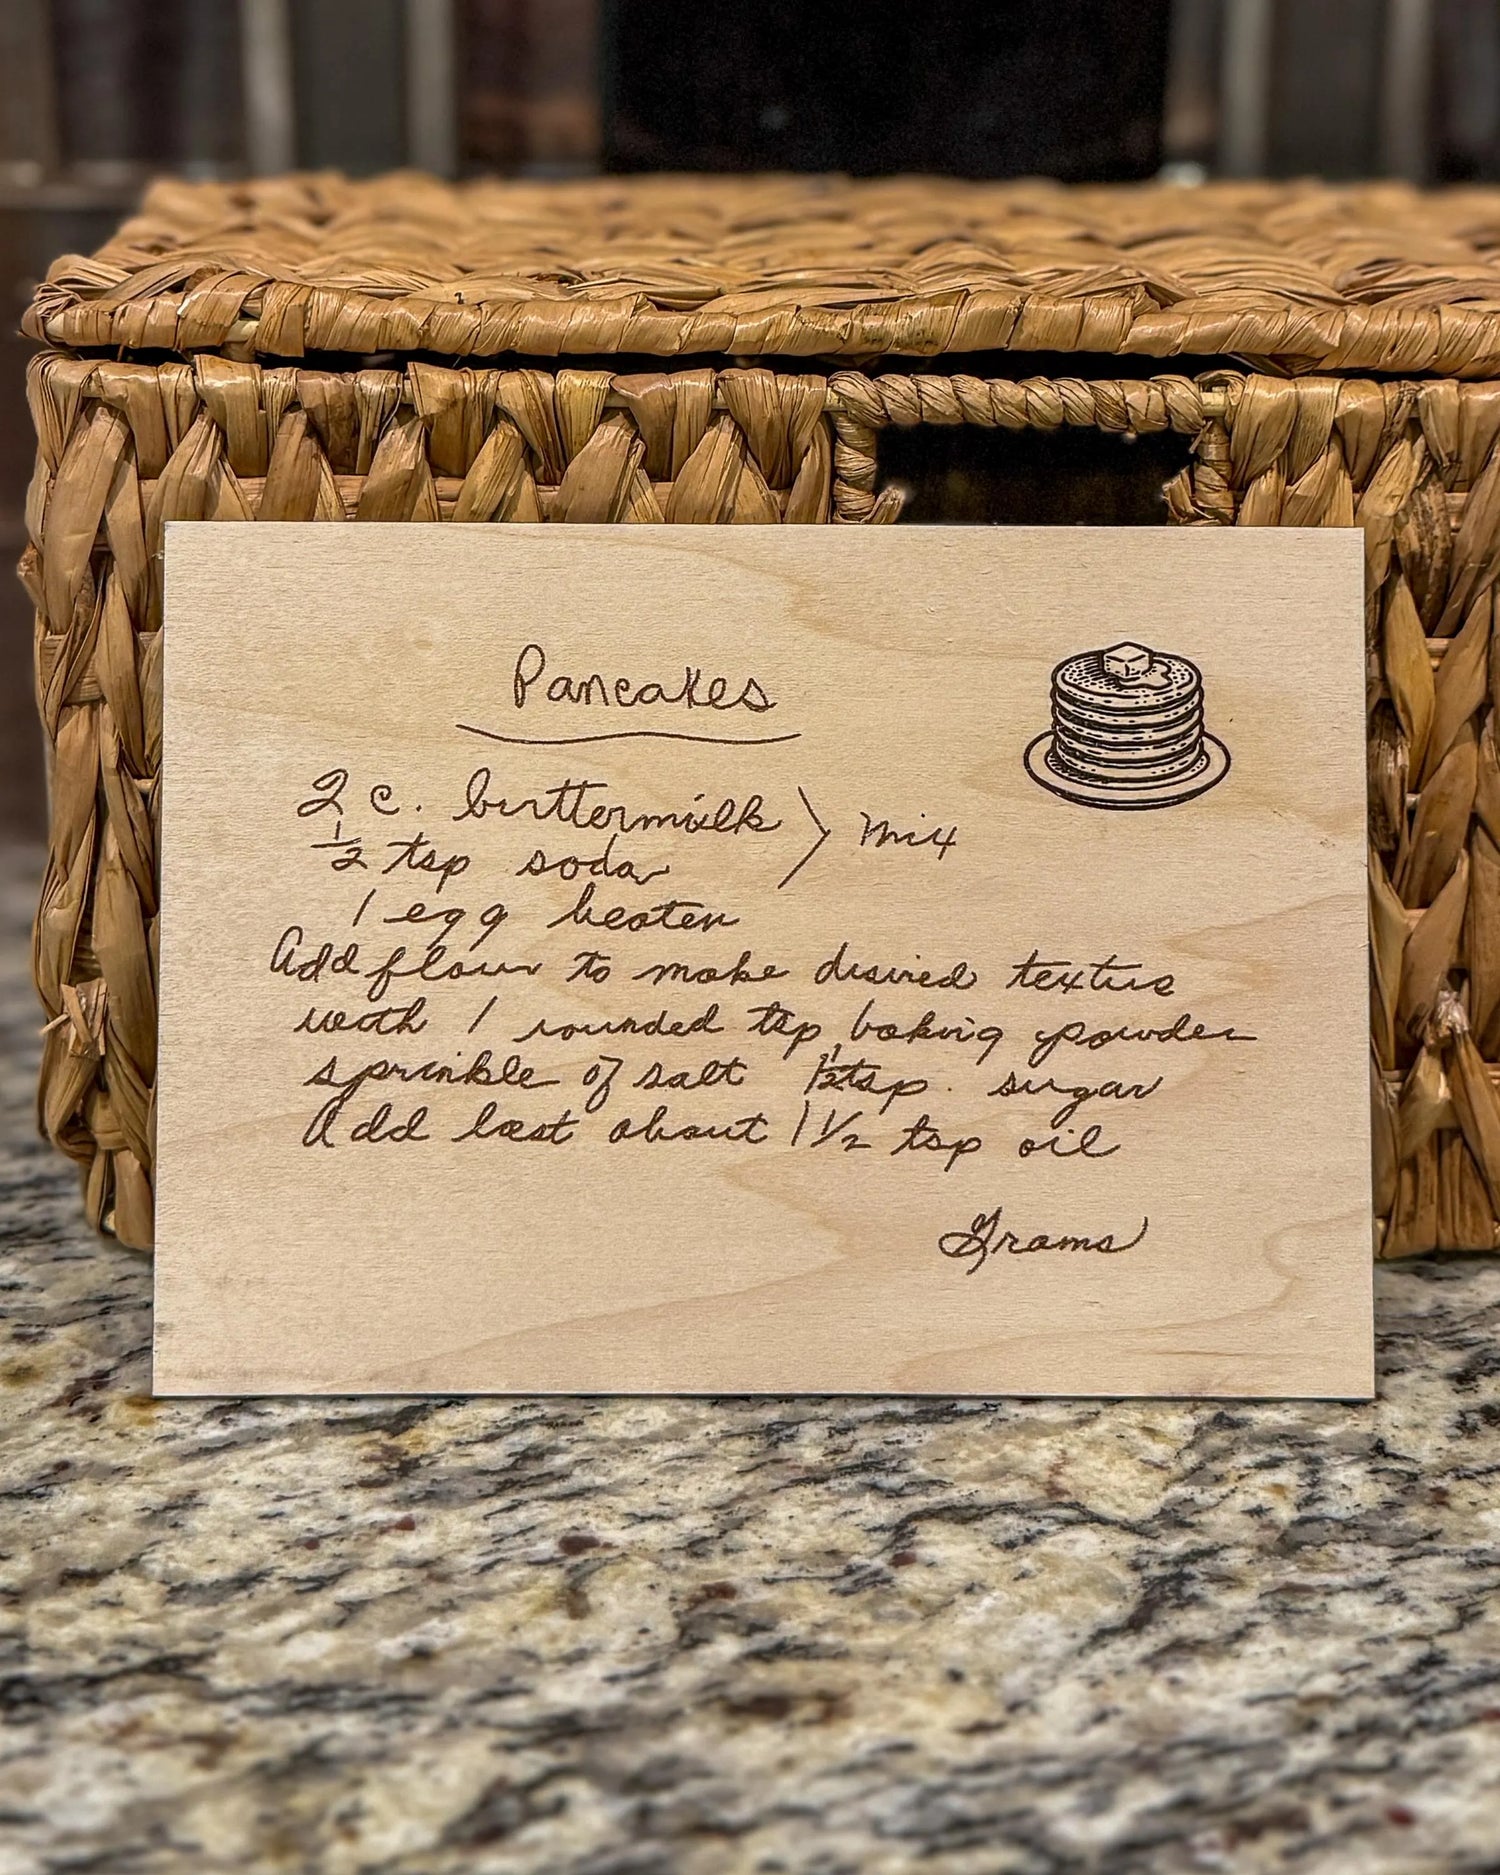 Pancakes
2 c. buttermilk > mix
1/2 tsp soda
1 egg beaten
Add flour to make desired textue
with 1 rounded tsp baking powder
sprinkle of salt 1/2 tsp. sugar
Add last about 1 1/2 tsp oil
Grams